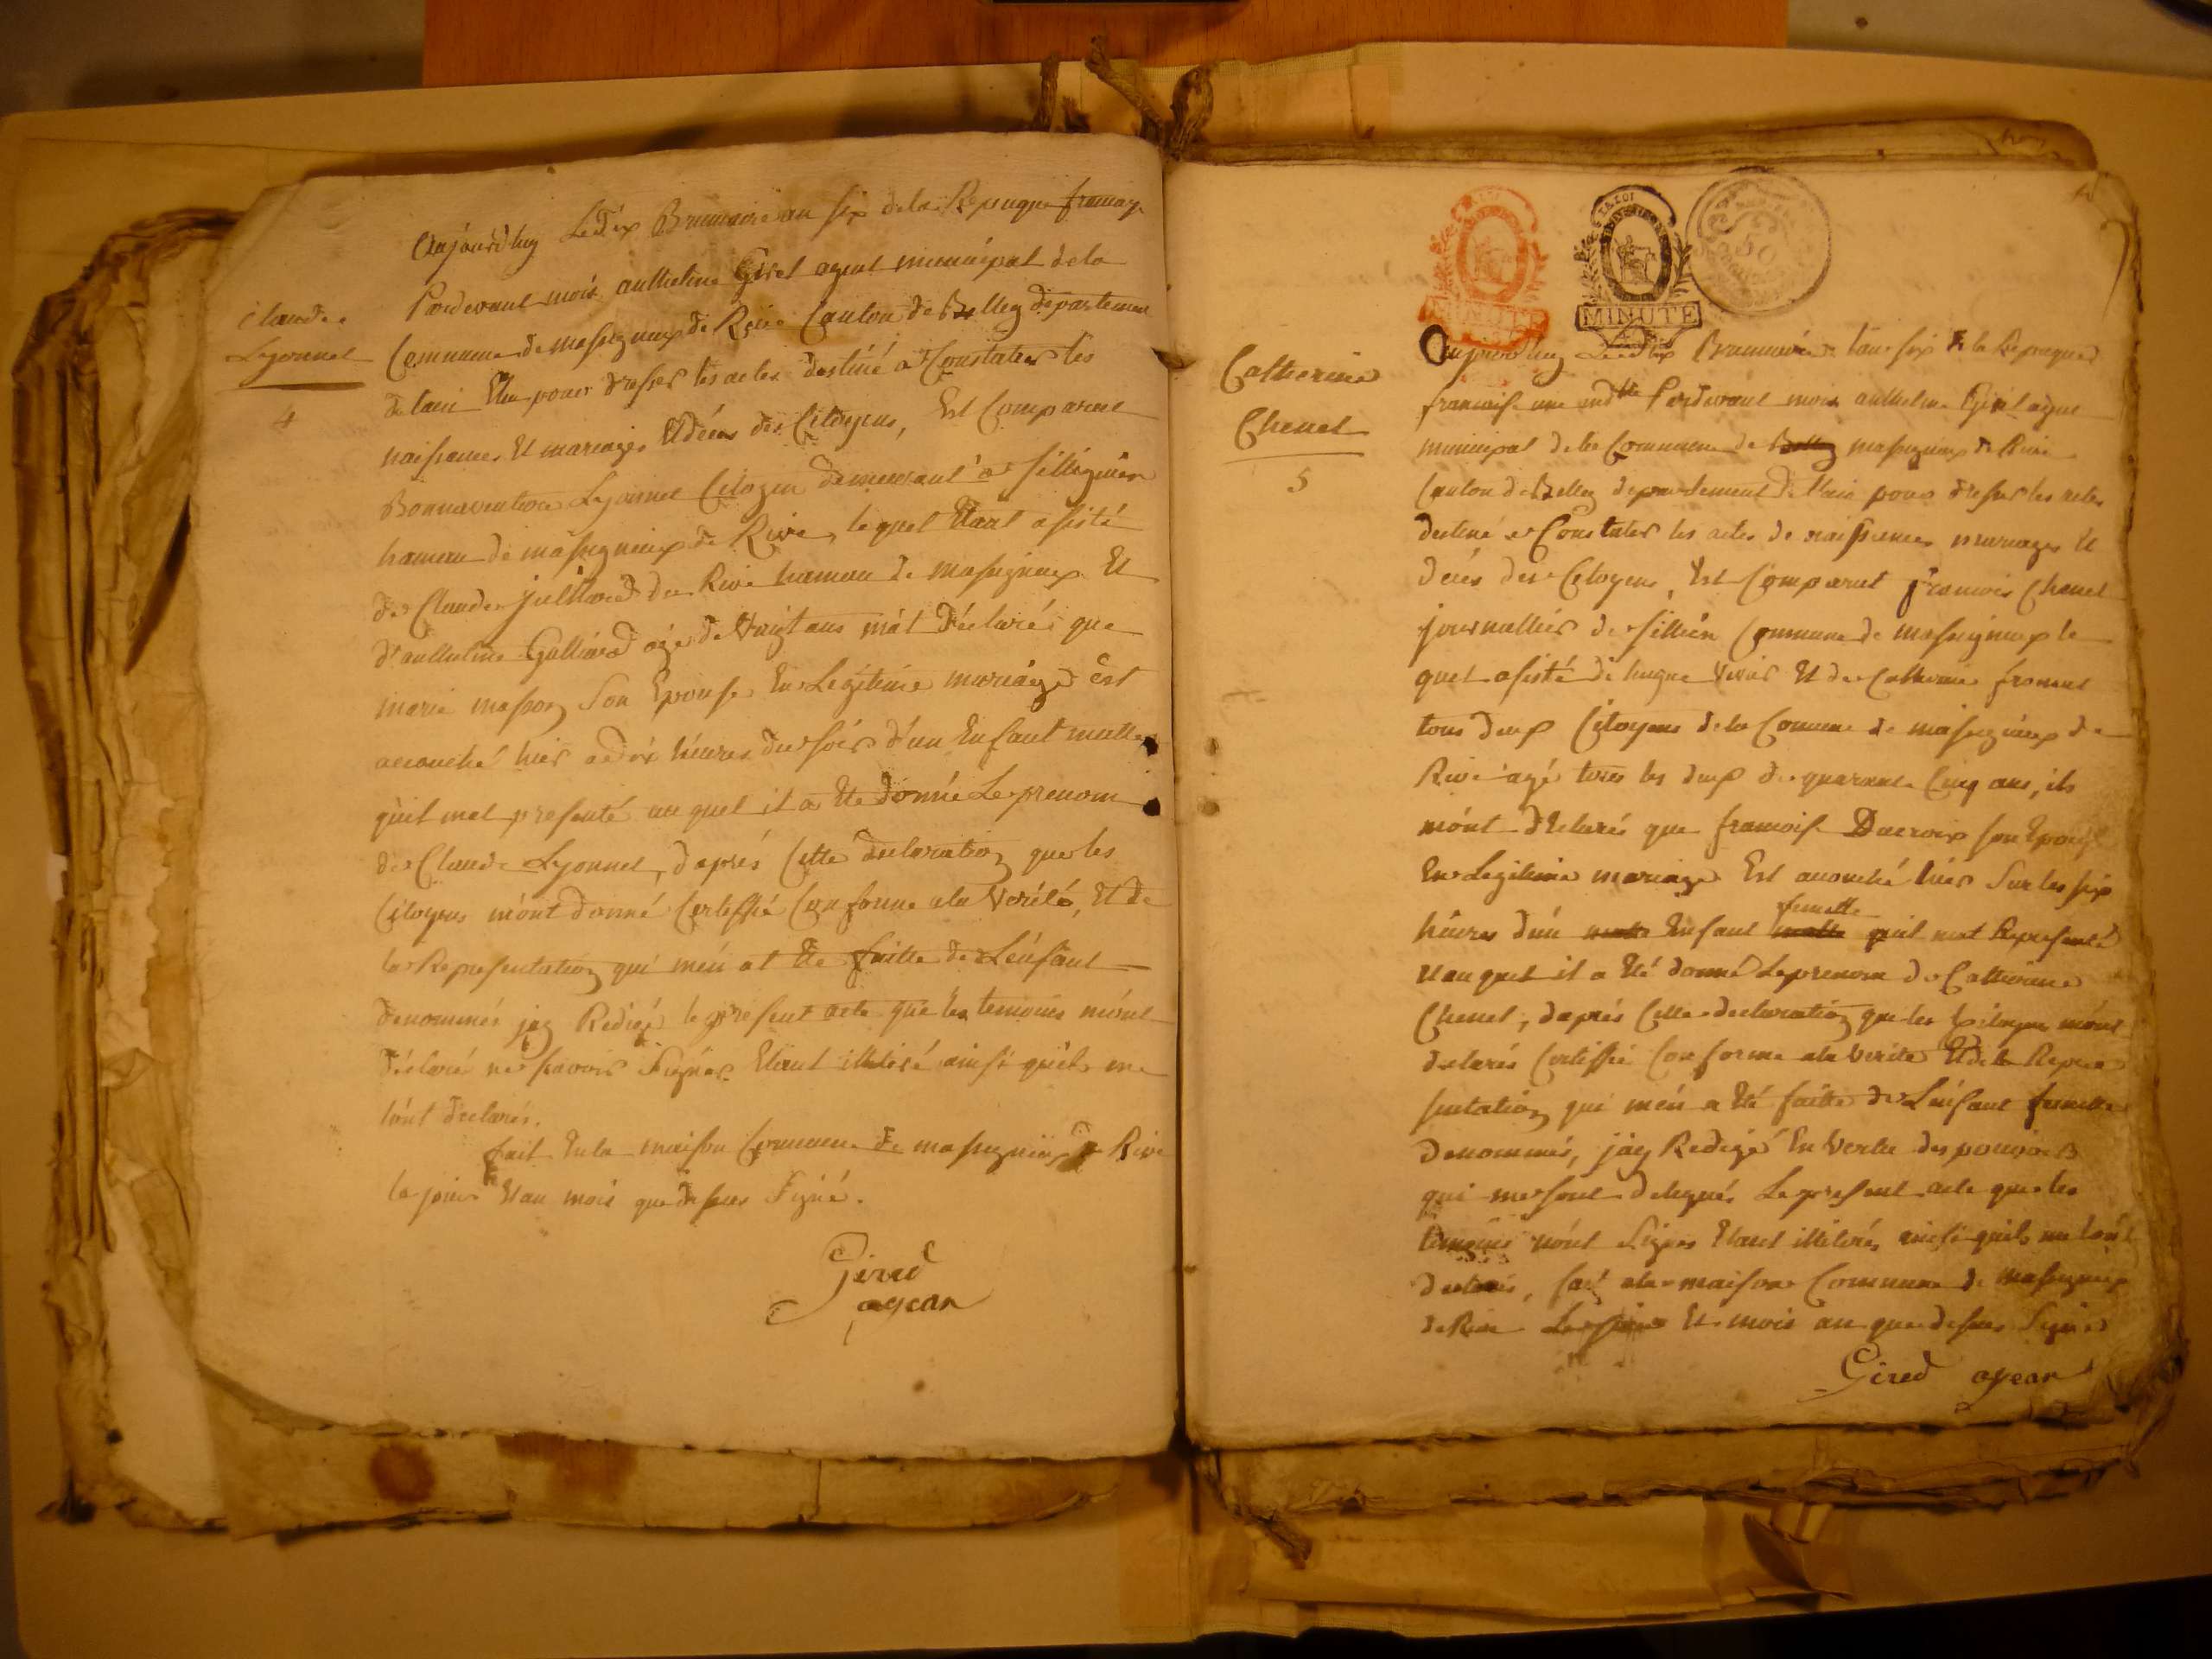 Claude
Lyonnet
4
Aujourd'huy Le Dix Brumaire an six de la Repuque
Pardevant moi anthelme Girel agent municipal de la
Commune de massignieux de Rive Canton de Belley département
de lain Elu pour dresser les actes destiné a Constater les
naissances Et mariages Et décés des Citoyens, Est Comparut
Bonnaventure Lyonnet Citoyen demeurant a sillignieu
hameau de massignieux de Rive, lequel Etant asisté
de Claude de Rive hameau de massignieux Et
d'anthelme agé de Vingt ans m'at Déclaré que
marie masson Son Epouse En Legitime mariage Est
accouché hier a dix heures du soir d'un Enfant malle
quil mat presenté au quel il a Ete donné Le prenom
de Claude Lyonnet, d'aprés Cette declaration que les
Citoyens m'ont donné Certiffié Conforme a la Verité, Et de
la Representation qui m'en at Ete faitte de L'enfant
denommés jay Redigé le present acte que les temoins m'ont
déclaré ne savoir Signer Etant illitéré ainsi quils me
l'ont declarés.
fait En la maison Commune de massignieux de Rive
le jour Et an mois que dessus Signé.
Girel
agean
MINUTE
MINUTE
50
Catherine
Chenet
5
Aujourd'huy Le dix Brumaire six de la Repuque
francaise une Pardevant moi anthelme Girel agent
municipal de la Commune de Belley massignieux de Rive
Canton de Belley departement de l'ain pour dresser les actes
destiné a Constater les actes de naissances mariages Et
décés des Citoyens, Est Comparut francois Chenet
journallier de sillieu Commune de massignieux le
quel asisté de hugue Et de Catherine froment
tous deux Citoyens de la Commune de massignieux de
Rive agé tous les deux de quarante Cinq ans, ils
m'ont déclarés que francoise Ducroix son Epouse
En Legitime mariage Est accouché hier Sur les six
heures d'un malle Enfant malle femelle quil mat Representé
Et au quel il a Eté donné Le prenom de Catherine
Chenet, d'aprés Cette declaration que les Citoyens m'ont
declarés Certiffié Conforme a la Verité Et de la Repre
sentation qui m'en a Eté faitte de L'enfant femelle
denommés, jay Redigé En Vertu des pouvoirs
qui me sont delegués Le present acte que les
temoins n'ont Signés Etant illiterés ainsi quils me l'ont
declarés, fait a la maison Commune de massignieux
de Rive Le jour Et mois an que dessus Signés
Girel agean